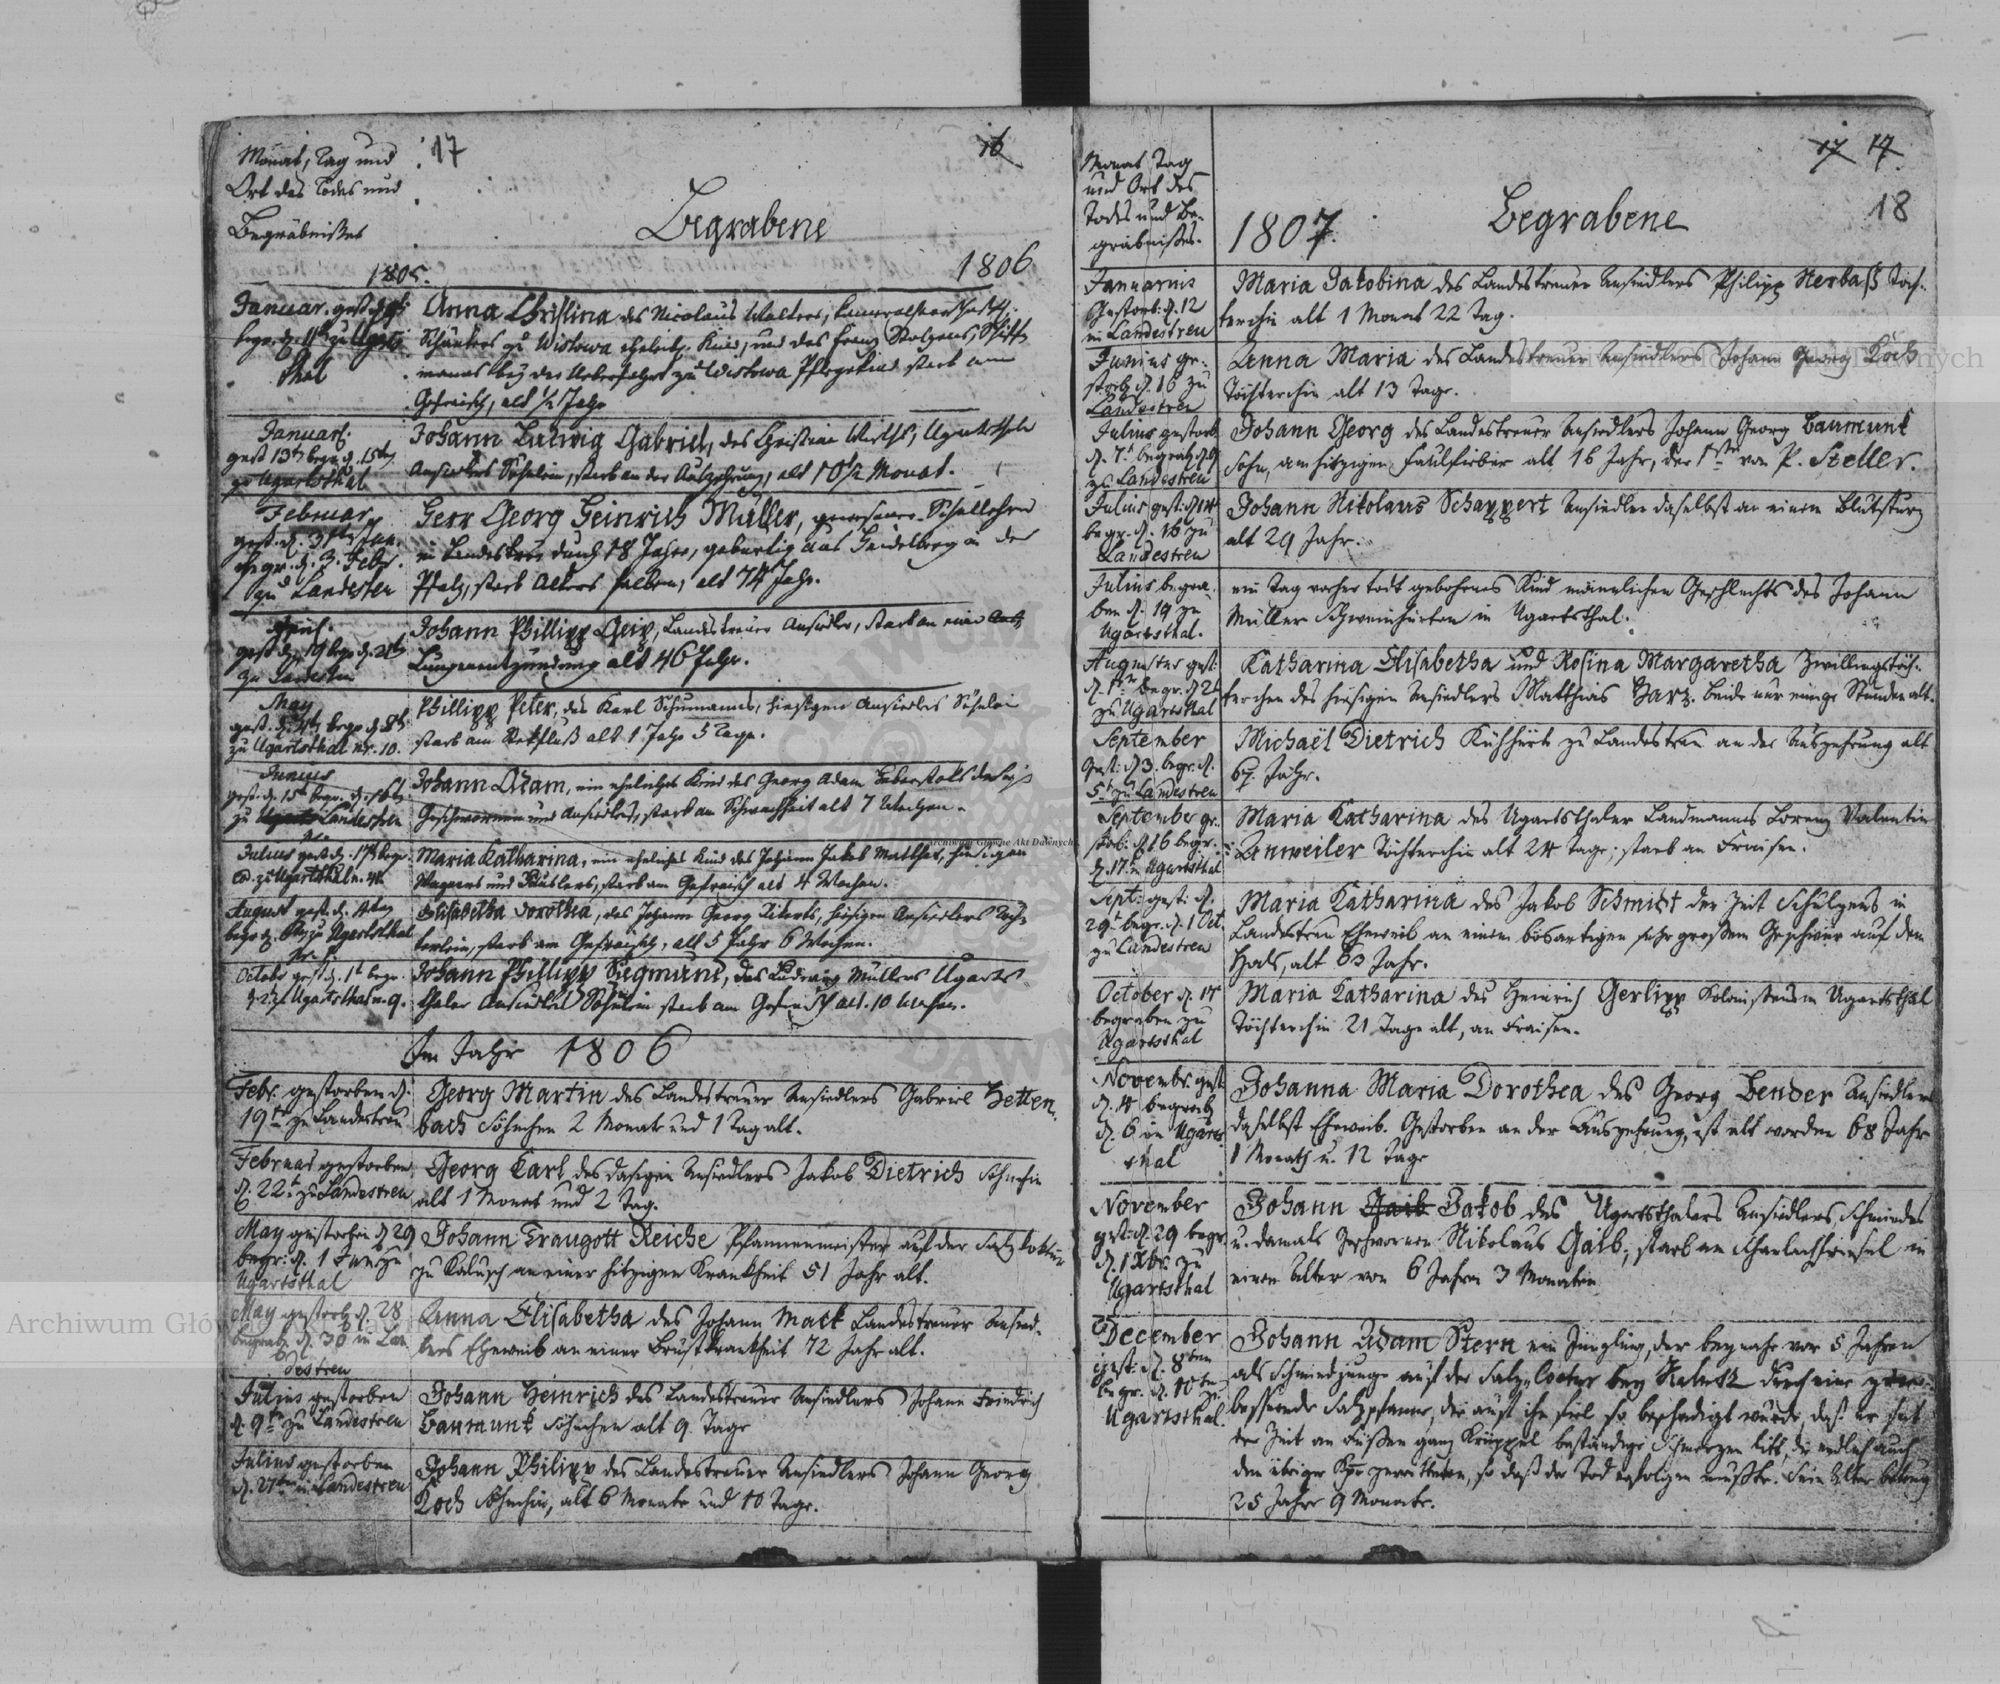 Monat, Tag und
Ort des Todes und
Begräbnißes
17
16
Begrabene
1805.
1806
Januar. gest. d.
begr. d. 11t zu Ugarts
thal
Anna Christina des Nicolaus Walters,
Schänkers zu Wistowa ehelich. Kind, und des Franz Stolzens, Schiff
manns bey der Ueberfuhr zu Wistowa Pflegekind starb am
Gefraisch, alt ½ Jahr
Januar.
gest 13t begr. d. 15ten
zu Ugartsthal
Johann Ludwig Gabriel, des Christian Wirths, Ugartsthaler
Ansiedlers Söhnlein, starb an der Auszehrung, alt 10½ Monat.
Februar
gest. d. 31t Jan.
begr. d. 3. Febr.
zu Landestreu
Herr Georg Heinrich Müller, gewesener Schullehrer
in Landestreu durch 18 Jahre, gebürtig aus Heidelberg in der
Pfalz, starb Alters halben, alt 74 Jahr.
April
gest. d. 19 begr. d. 21t
zu Landestreu
Johann Phillipp Geip, Landestreuer Ansiedler, starb an einer
Lungenentzündung alt 46 Jahr.
May
gest. d. 4t begr. d. 8t
zu Ugartsthal nr. 10.
Phillipp Peter, des Karl Schumanns, hiesigen Ansiedlers Söhnlein
starb am Stekfluß alt 1 Jahr 5 Tage.
Junius
gest. d. 15t begr. d. 16t
zu Landestreu
Johann Adam, ein eheliches Kind des Georg Adam Haberstoks daselbst
Geschwornen und Ansiedlers, starb an Schwachheit alt 7 Wochen.
Julius gest. d. 17t begr.
zu Ugartsthal n. 4
Maria Katharina, ein eheliches Kind des Johann Jakob Matthes, hiesigen
Wagners und Häuslers, starb am Gefraisch alt 4 Wochen.
August gest. d. 4ten
begr. d. 6t zu Ugartsthal
Elisabetha Dorothea, des Johann Georg Eikerts, hiesigen Ansiedlers Töch-
terlein, starb am Gefraisch, alt 5 Jahr 6 Wochen.
October gest. d. 1t begr.
d. 2. Ugartsthal n. 9.
Johann Phillipp Siegmund, des Ludwig Müllers Ugarts-
thaler Ansiedlers Söhnlein starb am Gefraisch alt 10 Wochen.
Im Jahr 1806
Febr. gestorben d.
19t zu Landestreu
Georg Martin des Landestreuer Ansiedlers Gabriel Hetten-
bach Söhnchen 2 Monate und 1 Tag alt.
Februar gestorben
d. 22t zu Landestreu
Georg Carl, des dasigen Ansiedlers Jakob Dietrich Söhnchen
alt 1 Monat und 2 Tag.
May gestorben d. 29
begr. d. 1 Jun. zu
Ugartsthal
Johann Traugott Reiche Pfannenmeister auf der Salz Cottur
zu Kalusch an einer hitzigen Krankheit 51 Jahr alt.
May gestorb. d. 28
begrab. d. 30 in Lan
destreu
Anna Elisabetha des Johann Mack Landestreuer Ansied-
lers Eheweib an einer Brustkrankheit 72 Jahr alt.
Julius gestorben
d. 9t zu Landestreu
Johann Heinrich des Landestreuer Ansiedlers Johann Friedrich
Baumunk Söhnchen alt 9 Tage
Julius gestorben
d. 27ten in Landestreu
Johann Philipp des Landestreuer Ansiedlers Johann Georg
Koch Söhnchen, alt 6 Monate und 10 Tage.
Monat Tag
und Ort des
Todes und Be-
gräbnißes.
17 17
18
1807.
Begrabene
Januarius
Gestorb. d. 12
in Landestreu
Maria Jakobina des Landestreuer Ansiedlers Philipp Herbaß Töch-
terchen alt 1 Monat 22 Tag.
Junius ge-
storb. d. 16 zu
Landestreu
Anna Maria des Landestreuer Ansiedlers Johann Georg Koch
Töchterchen alt 13 Tage.
Julius gestorb.
d. 7t begrab. d. 9
zu Landestreu
Johann Georg des Landestreuer Ansiedlers Johann Georg Baumunk
Sohn, am hitzigen Faulfieber alt 16 Jahr, der 1ste von P. Steller.
Julius gest. d. 14
begr. d. 16 zu
Landestreu
Johann Nikolaus Schappert Ansiedler daselbst an einem Blutsturz
alt 29 Jahr.
Julius begra-
ben d. 19 zu
Ugartsthal.
ein Tag vorher todt gebohrnes Kind männlichen Geschlechts des Johann
Müller Schweinhirten in Ugartsthal.
Augustus gest.
d. 1t begr. d. 2t
zu Ugartsthal
Katharina Elisabetha und Rosina Margaretha Zwillingstöch-
terchen des hiesigen Ansiedlers Matthias Harz. beide nur einige Stunden alt.
September
Gest. d. 3. begr. d.
5t zu Landestreu
Michaël Dietrich Kühhirt zu Landestreu an der Auszehrung alt
67. Jahr.
September ge-
storb. d. 16 begr.
d. 17. in Ugartsthal
Maria Katharina des Ugartsthaler Landmanns Lorenz Valentin
Anweiler Töchterchen alt 24 Tage: starb an Fraisen.
Sept. gest. d.
29t begr. d. 1 Oct.
zu Landestreu
Maria Katharina des Jakob Schmidt der Zeit Schulzens in
Landestreu Eheweib an einem bösartigen sehr großem Geschwür auf dem
Hals, alt 63 Jahr.
October d. 14
begraben zu
Ugartsthal
Maria Katharina des Heinrich Gerlipp Kolonistens in Ugartsthal
Töchterchen 21 Tage alt, an Fraisen.
Novembr. gest.
d. 4 begrab.
d. 6 in Ugarts
thal
Johanna Maria Dorothea des Georg Bender Ansiedlers
daselbst Eheweib. Gestorben an der Auszehrung, ist alt worden 68 Jahr
1 Monath u. 12 Tage
November
gest. d. 29 begr.
d. 1 Xbr. zu
Ugartsthal
Johann Gaib Jakob des Ugartsthalers Ansiedlers, Schmiedes
u. damals Geschwornen Nikolaus Gaib, starb am Scharlachfriesel in
einem Alter von 6 Jahren 3 Monaten
December
gest. d. 8ten
begr. d. 10ten zu
Ugartsthal.
Johann Adam Stern ein Jüngling, der beynahe vor 5 Jahren
als Schmiedjunge auf der Salz-Coctur bey Kalusz durch eine
bessernde Salzpfanne, die auf ihn fiel so beschädigt wurde, daß er seit
der Zeit an Füßen ganz Krüppel beständige Schmerzen litt, die endlich auch
den übrigen Kpr zerrütteten, so daß der Tod erfolgen mußte. Sein Alter betrug
25 Jahre 9 Monate.
Archiwum Główne Akt Dawnych